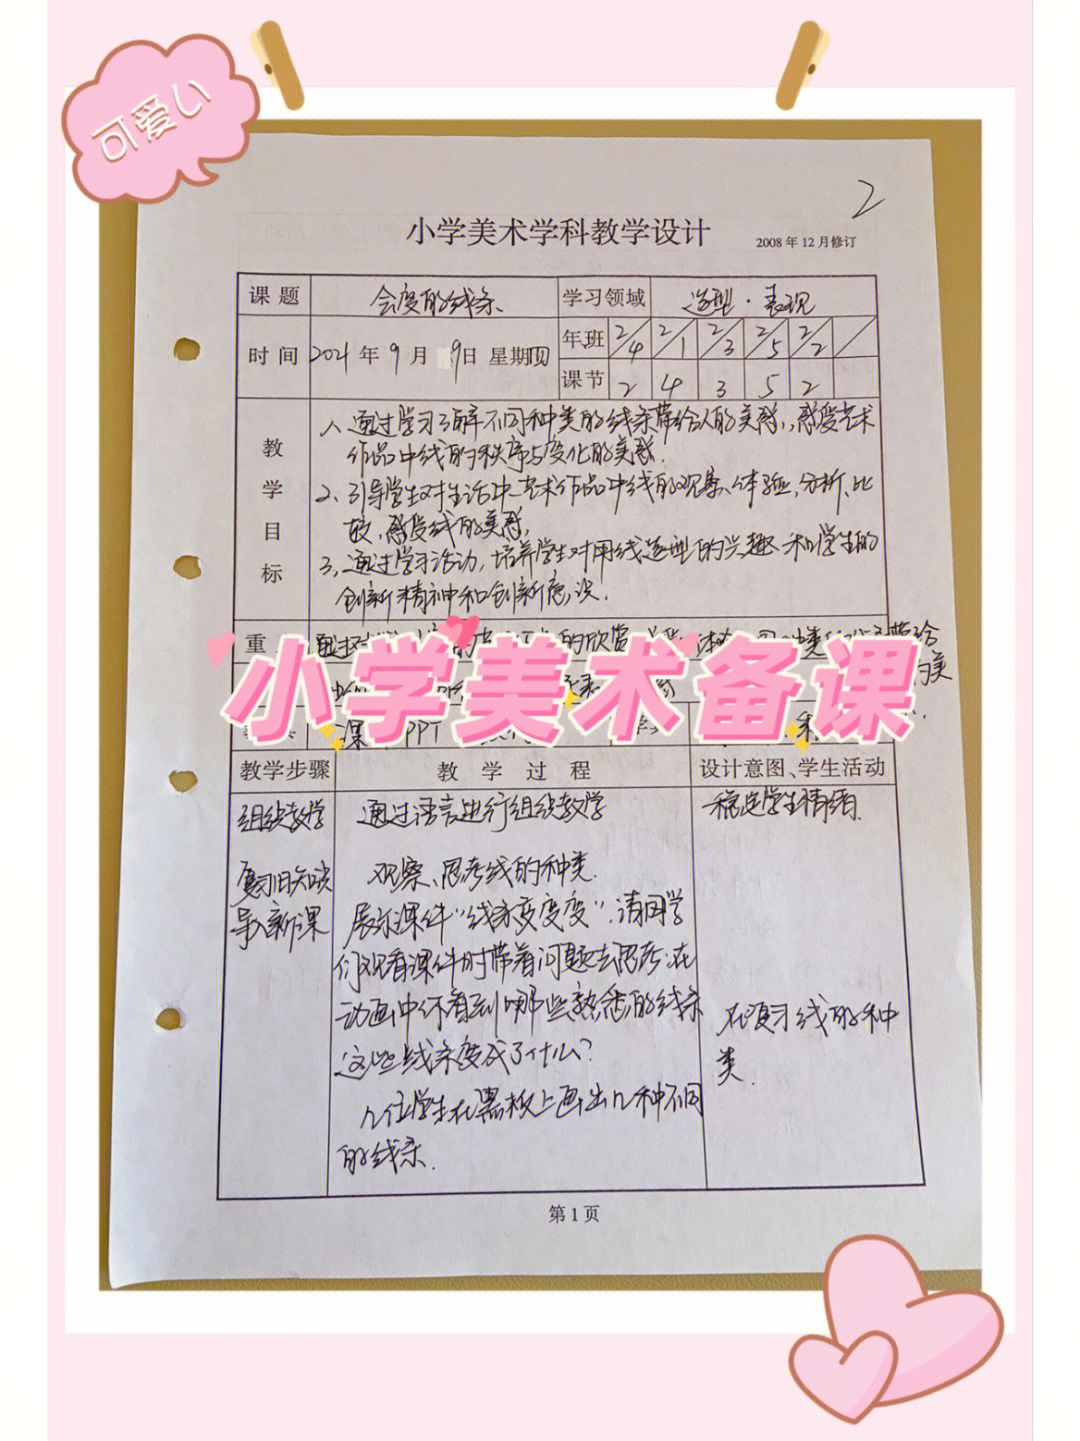 可爱い
2
小学美术学科教学设计
2008年12月修订
课题 会变的线条 学习领域 造型·表现
时间 2021年9月9日 星期四 年班 2/4 2/1 2/3 2/5 2/2
课节 2 4 3 5 2
教学目标
1、通过学习了解不同种类的线条带给人的美感,感受艺术
作品中线的秩序与变化的美感.
2、引导学生对生活中艺术作品中线的观察、体验、分析、比
较,感受线的美感,
3、通过学习活动,培养学生对用线造型的兴趣、和学生的
创新精神和创新意识.
重
的欣赏
带给
的美
小学美术备课
课 PPT
教学步骤 教学过程 设计意图、学生活动
组织教学 通过语言进行组织教学 稳定学生情绪.
复习旧知谈 观察、思考线的种类.
导入新课 展示课件“线条变变变”,请同学
们观看课件时带着问题去思考:在
动画中你看到哪些熟悉的线条
这些线条变成了什么?
几位学生在黑板上画出几种不同
的线条.
在复习线的种
类.
第1页